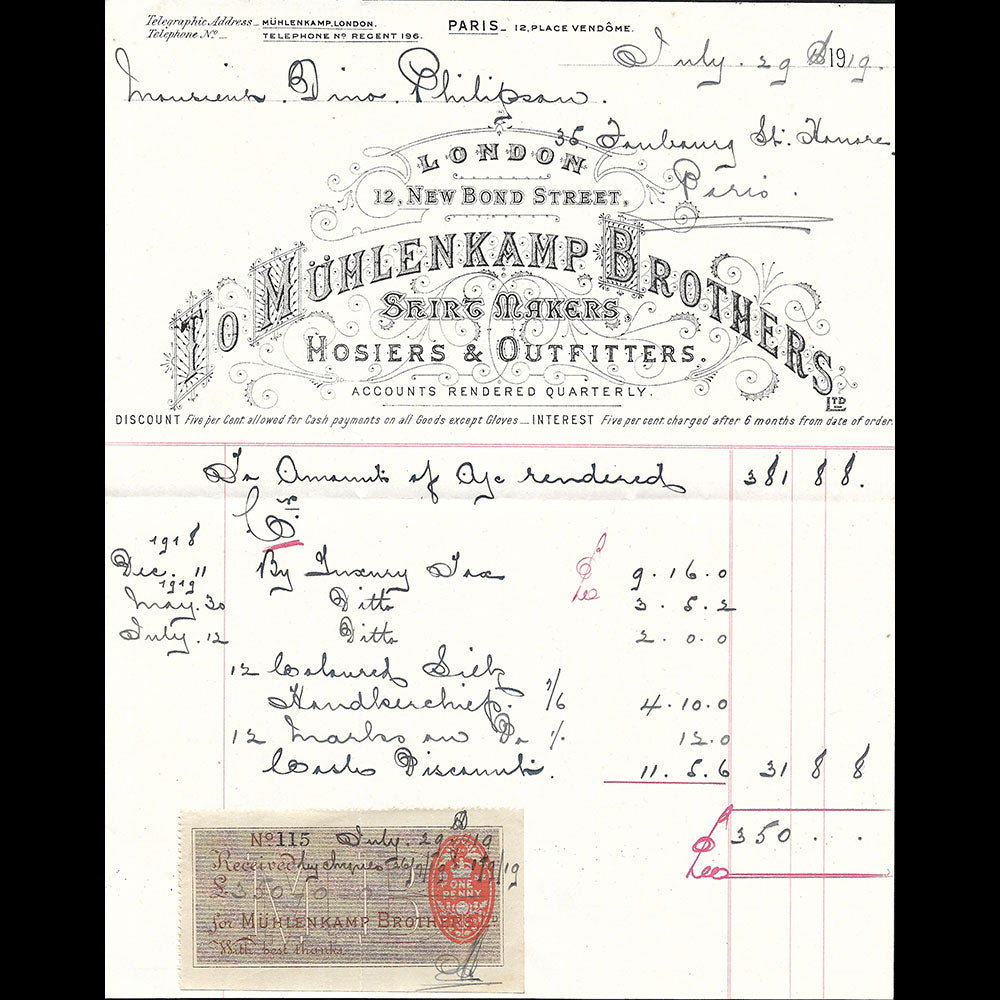 Telegraphic Address _ MÜHLENKAMP, LONDON.
Telephone No _ TELEPHONE No REGENT 196.
PARIS_ 12, PLACE VENDÔME.
July. 29 1919.
Monsieur. Dino. Philipson.
36. Faubourg St. Honore
Paris.
LONDON
12, NEW BOND STREET,
TO MÜHLENKAMP BROTHERS LTD
SHIRT MAKERS,
HOSIERS & OUTFITTERS.
ACCOUNTS RENDERED QUARTERLY.
DISCOUNT Five per Cent allowed for Cash payments on all Goods except Gloves _ INTEREST Five per cent. charged after 6 months from date of order.
To Amount of A/c rendered 381 8 8.
Cr
1918
Dec. 11 By Luxury Tax £ 9.16.0
1919
May. 30 Ditto 3.5.2
July. 12 Ditto 2.0.0
12 Coloured Silk
Handkerchiefs. 7/6 4.10.0
12 Marks on Do 1/. 12.0
Cash Discount. 11.5.6 31 8 8
£ 350 . . .
No 115 July. 29 1919
Received by cheques
£350
for MÜHLENKAMP BROTHERS LTD
With best thanks
ONE
PENNY